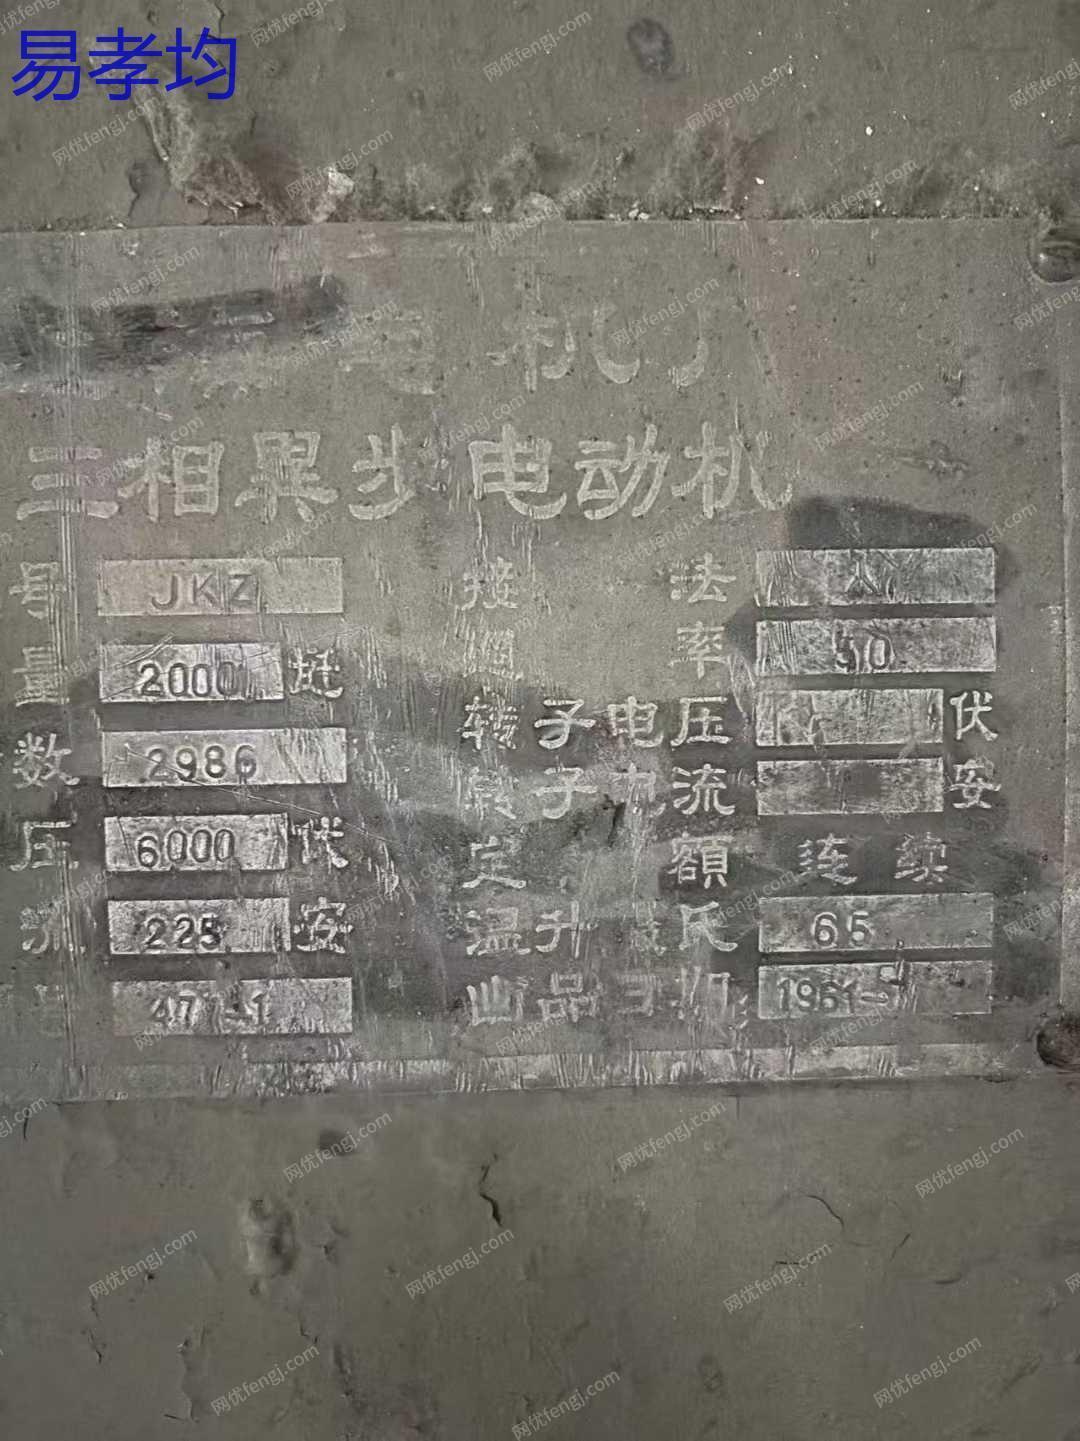 易孝均
电机厂
三相異步电动机
号 JKZ 接 法 人
量 2000 瓩 週 率 50
数 2986 转子电压 伏
压 6000 伏 转子电流 安
流 225 安 定 額 连续
号 471-1 温升 氏 65
出品日期 1961-
网优fengj.com